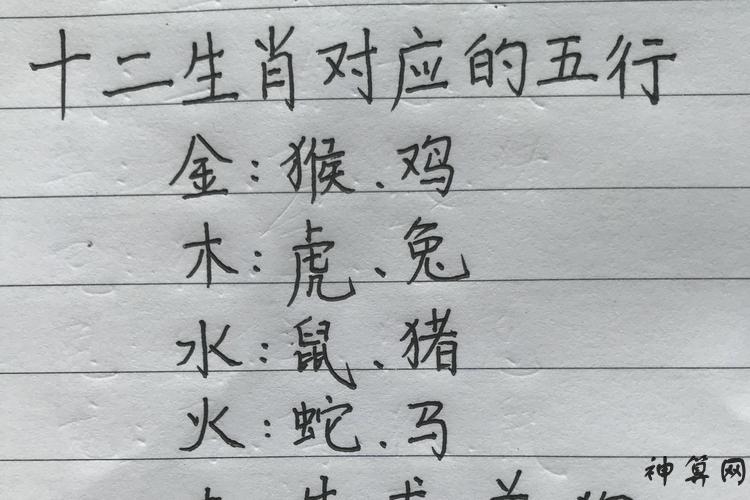 十二生肖对应的五行
金:猴、鸡
木:虎、兔
水:鼠、猪
火:蛇、马
神算网